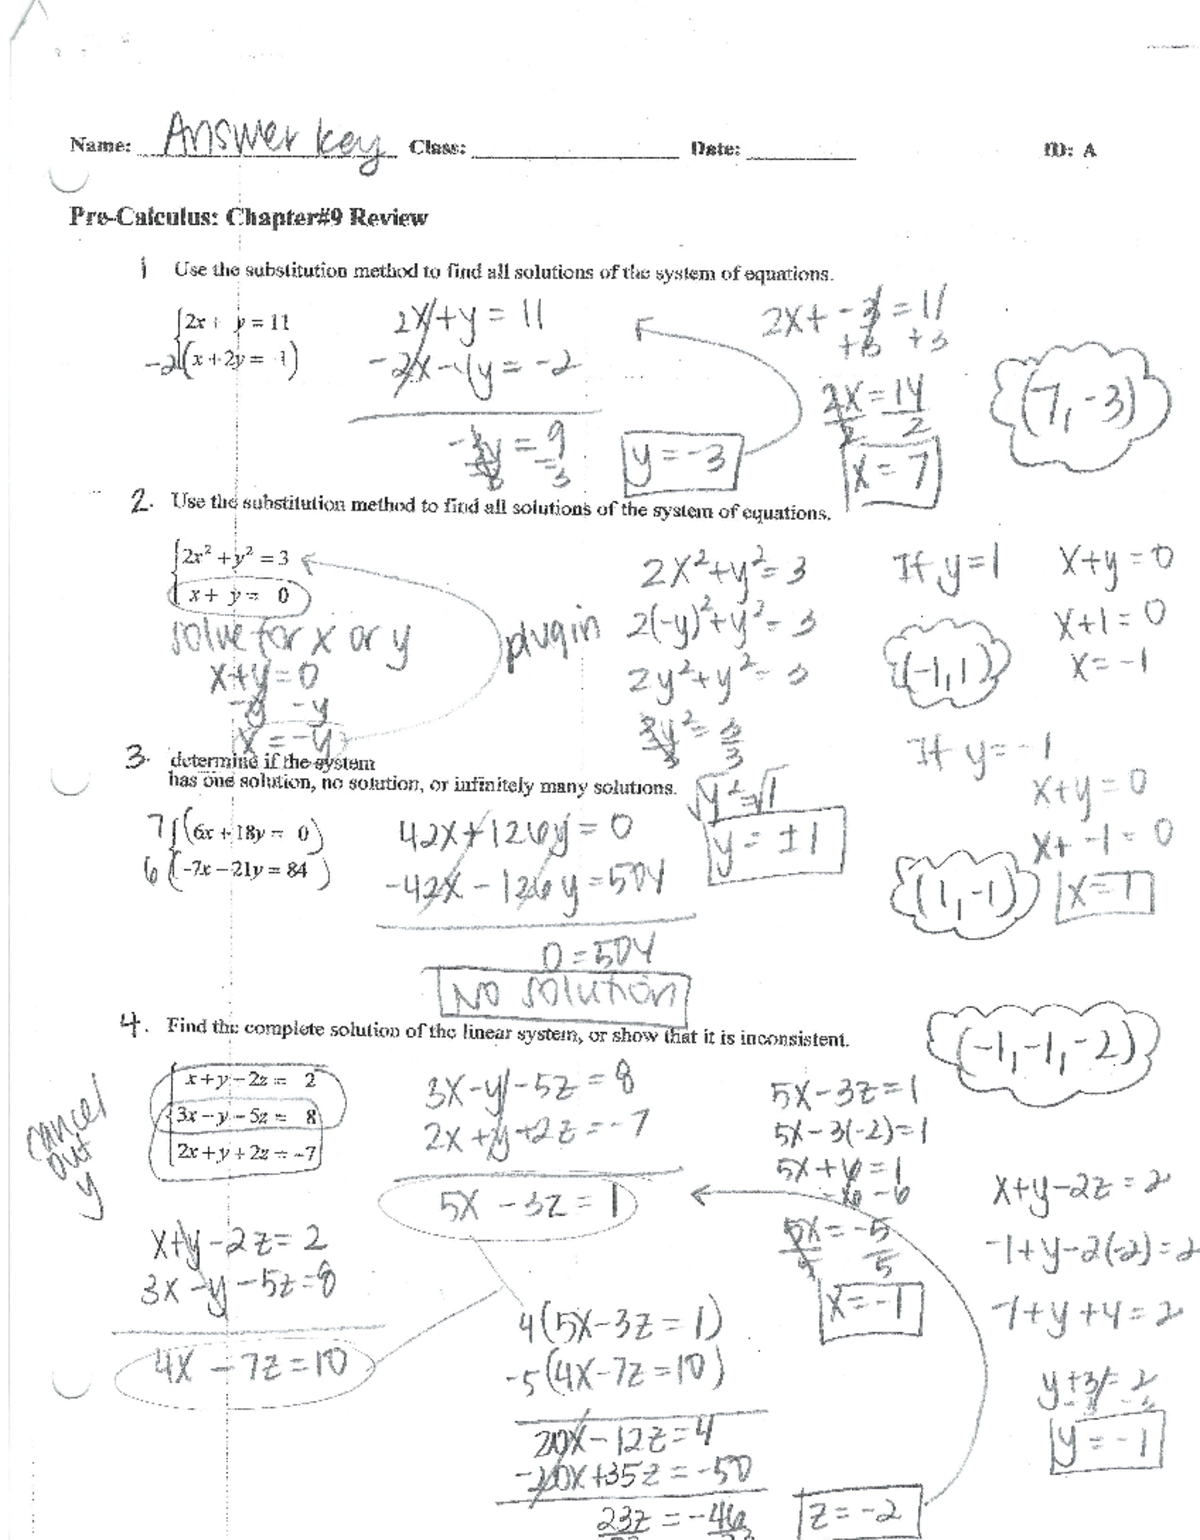 Name: Answer key Class: Date: ID: A
Pre-Calculus: Chapter#9 Review
1 Use the substitution method to find all solutions of the system of equations.
2x + y = 11
-2(x + 2y = 1)
2x + y = 11
-2x - 4y = -2
-3y = 9
-3 -3
y = -3
2x + -3 = 11
+3 +3
2x = 14
2 2
x = 7
(7, -3)
2. Use the substitution method to find all solutions of the system of equations.
2x² + y² = 3
x + y = 0
solve for x or y
x+y=0
-y -y
x = -y
plug in
2x²+y²=3
2(-y)²+y²=3
2y²+y²=3
3y²=3
3 3
√y²=√1
y = ±1
If y=1
x+y=0
x+1=0
x=-1
(-1,1)
If y=-1
x+y=0
x+ -1=0
x=1
(1,-1)
3. determine if the system
has one solution, no solution, or infinitely many solutions.
7(6x + 18y = 0)
6(-7x - 21y = 84)
42x+126y=0
-42x-126y=504
0=504
No solution
4. Find the complete solution of the linear system, or show that it is inconsistent.
x + y - 2z = 2
3x - y - 5z = 8
2x + y + 2z = -7
cancel
out
y
3x-y-5z=8
2x+y+2z=-7
5x-3z=1
x+y-2z=2
3x-y-5z=8
4x-7z=10
4(5x-3z=1)
-5(4x-7z=10)
20x-12z=4
-20x+35z=-50
23z=-46
z=-2
5x-3z=1
5x-3(-2)=1
5x+6=1
-6 -6
5x=-5
5 5
x=-1
(-1,-1,-2)
x+y-2z=2
-1+y-2(-2)=2
-1+y+4=2
y+3=2
y=-1